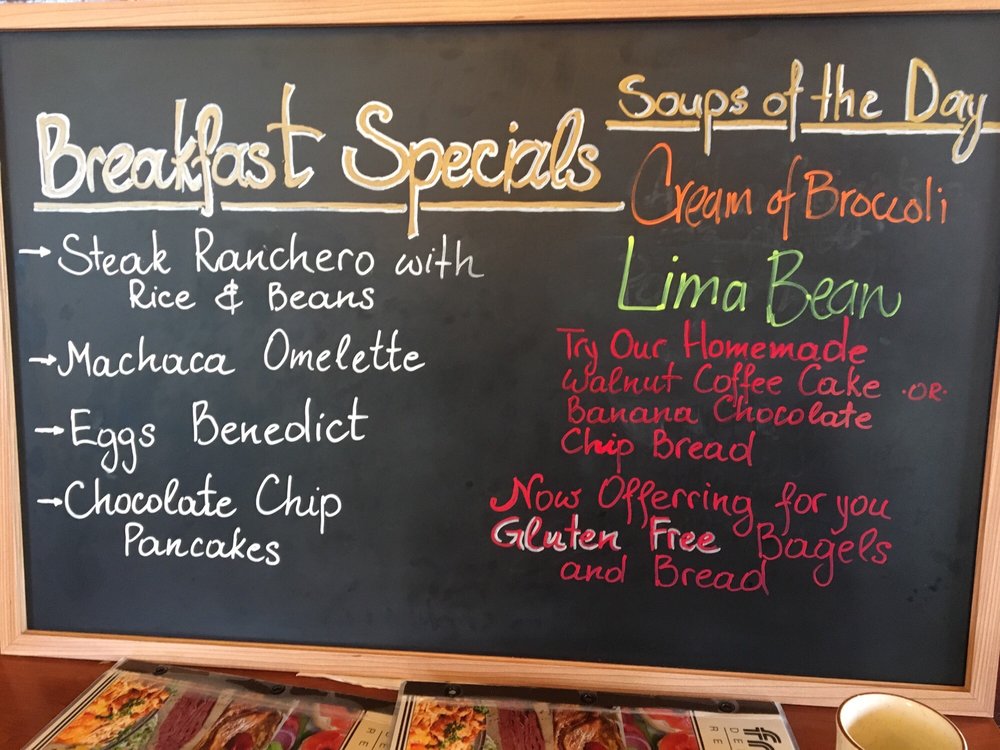 Breakfast Specials
→ Steak Ranchero with
Rice & Beans
→ Machaca Omelette
→ Eggs Benedict
→ Chocolate Chip
Pancakes
Soups of the Day
Cream of Broccoli
Lima Bean
Try Our Homemade
Walnut Coffee Cake ·OR·
Banana Chocolate
Chip Bread
Now Offerring for you
Gluten Free Bagels
and Bread